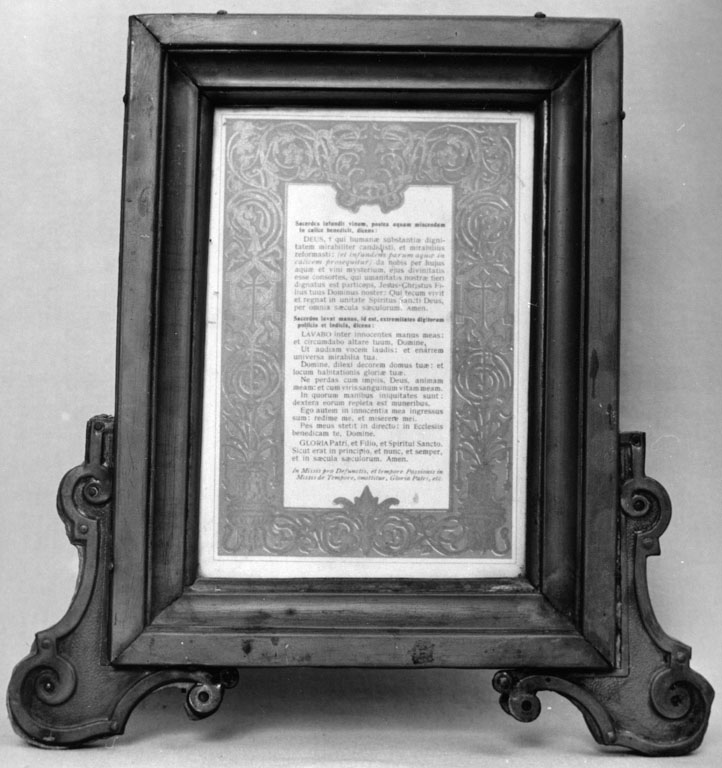 Sacerdos infundit vinum, postea aquam miscendam
in calice benedicit, dicens:
DEUS, † qui humanæ substantiæ digni-
tatem mirabiliter condidisti, et mirabilius
reformasti: (et infundens parum aquæ in
calicem prosequitur) da nobis per hujus
aquæ et vini mysterium, ejus divinitatis
esse consortes, qui umanitatis nostræ fieri
dignatus est particeps, Jesus-Christus Fi-
lius tuus Dominus noster: Qui tecum vivit
et regnat in unitate Spiritus Sancti Deus,
per omnia sæcula sæculorum. Amen.
Sacerdos lavat manus, id est, extremitates digitorum
pollicis et indicis, dicens:
LAVABO inter innocentes manus meas:
et circumdabo altare tuum, Domine,
Ut audiam vocem laudis: et enarrem
universa mirabilia tua.
Domine, dilexi decorem domus tuæ: et
locum habitationis gloriæ tuæ.
Ne perdas cum impiis, Deus, animam
meam: et cum viris sanguinum vitam meam.
In quorum manibus iniquitates sunt:
dextera eorum repleta est muneribus.
Ego autem in innocentia mea ingressus
sum: redime me, et miserere mei.
Pes meus stetit in directo: in Ecclesiis
benedicam te, Domine.
GLORIA Patri, et Filio, et Spiritui Sancto.
Sicut erat in principio, et nunc, et semper,
et in sæcula sæculorum. Amen.
In Missis pro Defunctis, et tempore Passionis in
Missis de Tempore, omittitur, Gloria Patri, etc.